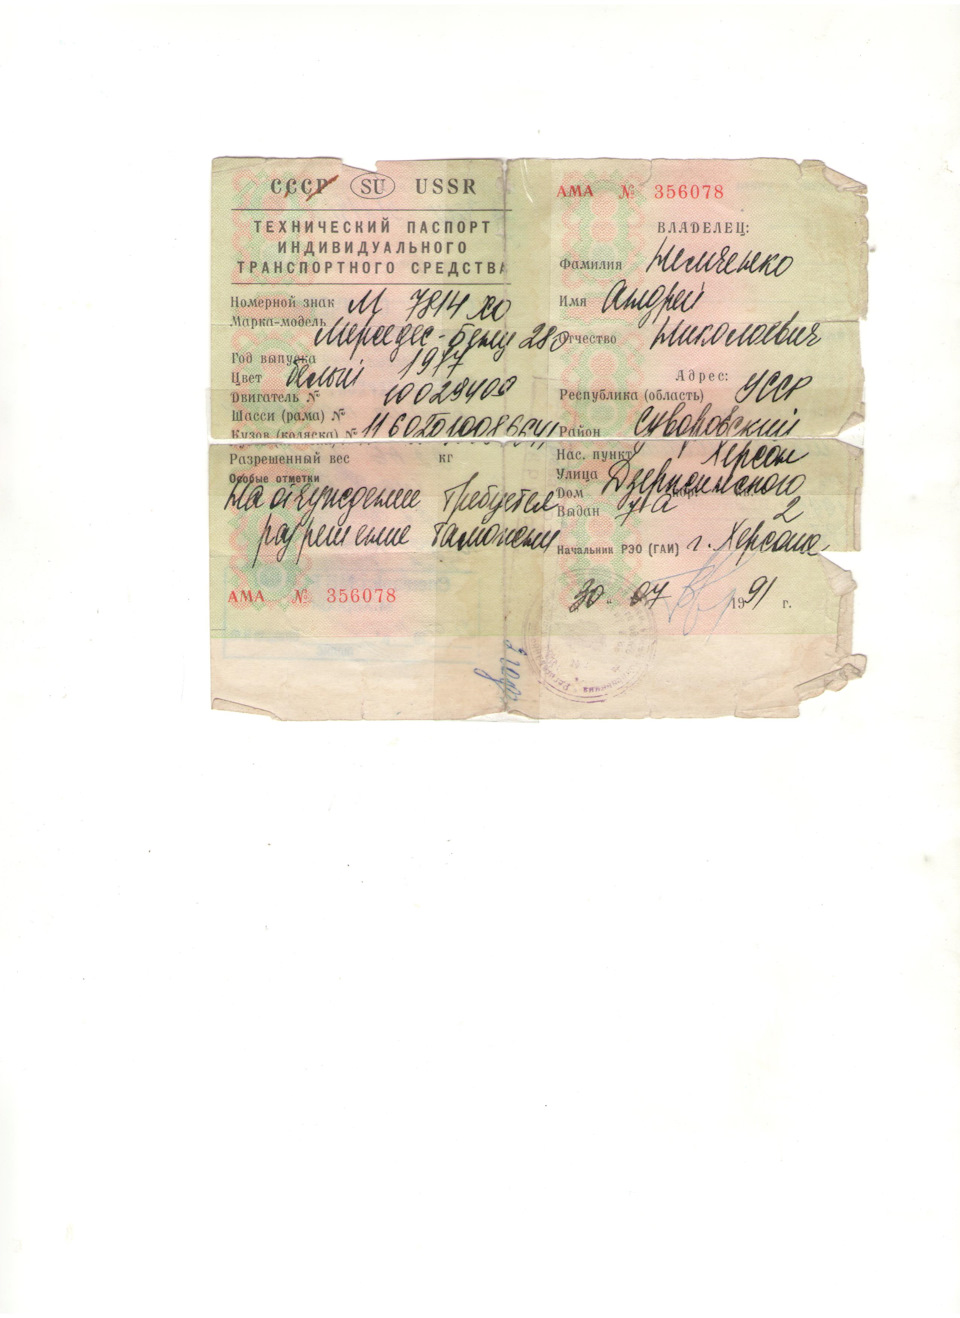 СССР SU USSR
ТЕХНИЧЕСКИЙ ПАСПОРТ
ИНДИВИДУАЛЬНОГО
ТРАНСПОРТНОГО СРЕДСТВА
Номерной знак М 7814 ХО
Марка-модель Мерседес-Бенц 280
Год выпуска 1977
Цвет белый
Двигатель №
Шасси (рама) №
Кузов (коляска) №
Разрешенный вес кг
Особые отметки
На отчуждение требуется
разрешение таможни
АМА № 356078
АМА № 356078
ВЛАДЕЛЕЦ:
Фамилия
Имя Андрей
Отчество Николаевич
Адрес:
Республика (область) УССР
Район Суворовский
Нас. пункт г. Херсон
Улица Дзержинского
Дом
Выдан
Начальник РЭО (ГАИ) г. Херсона
30 07 1991 г.